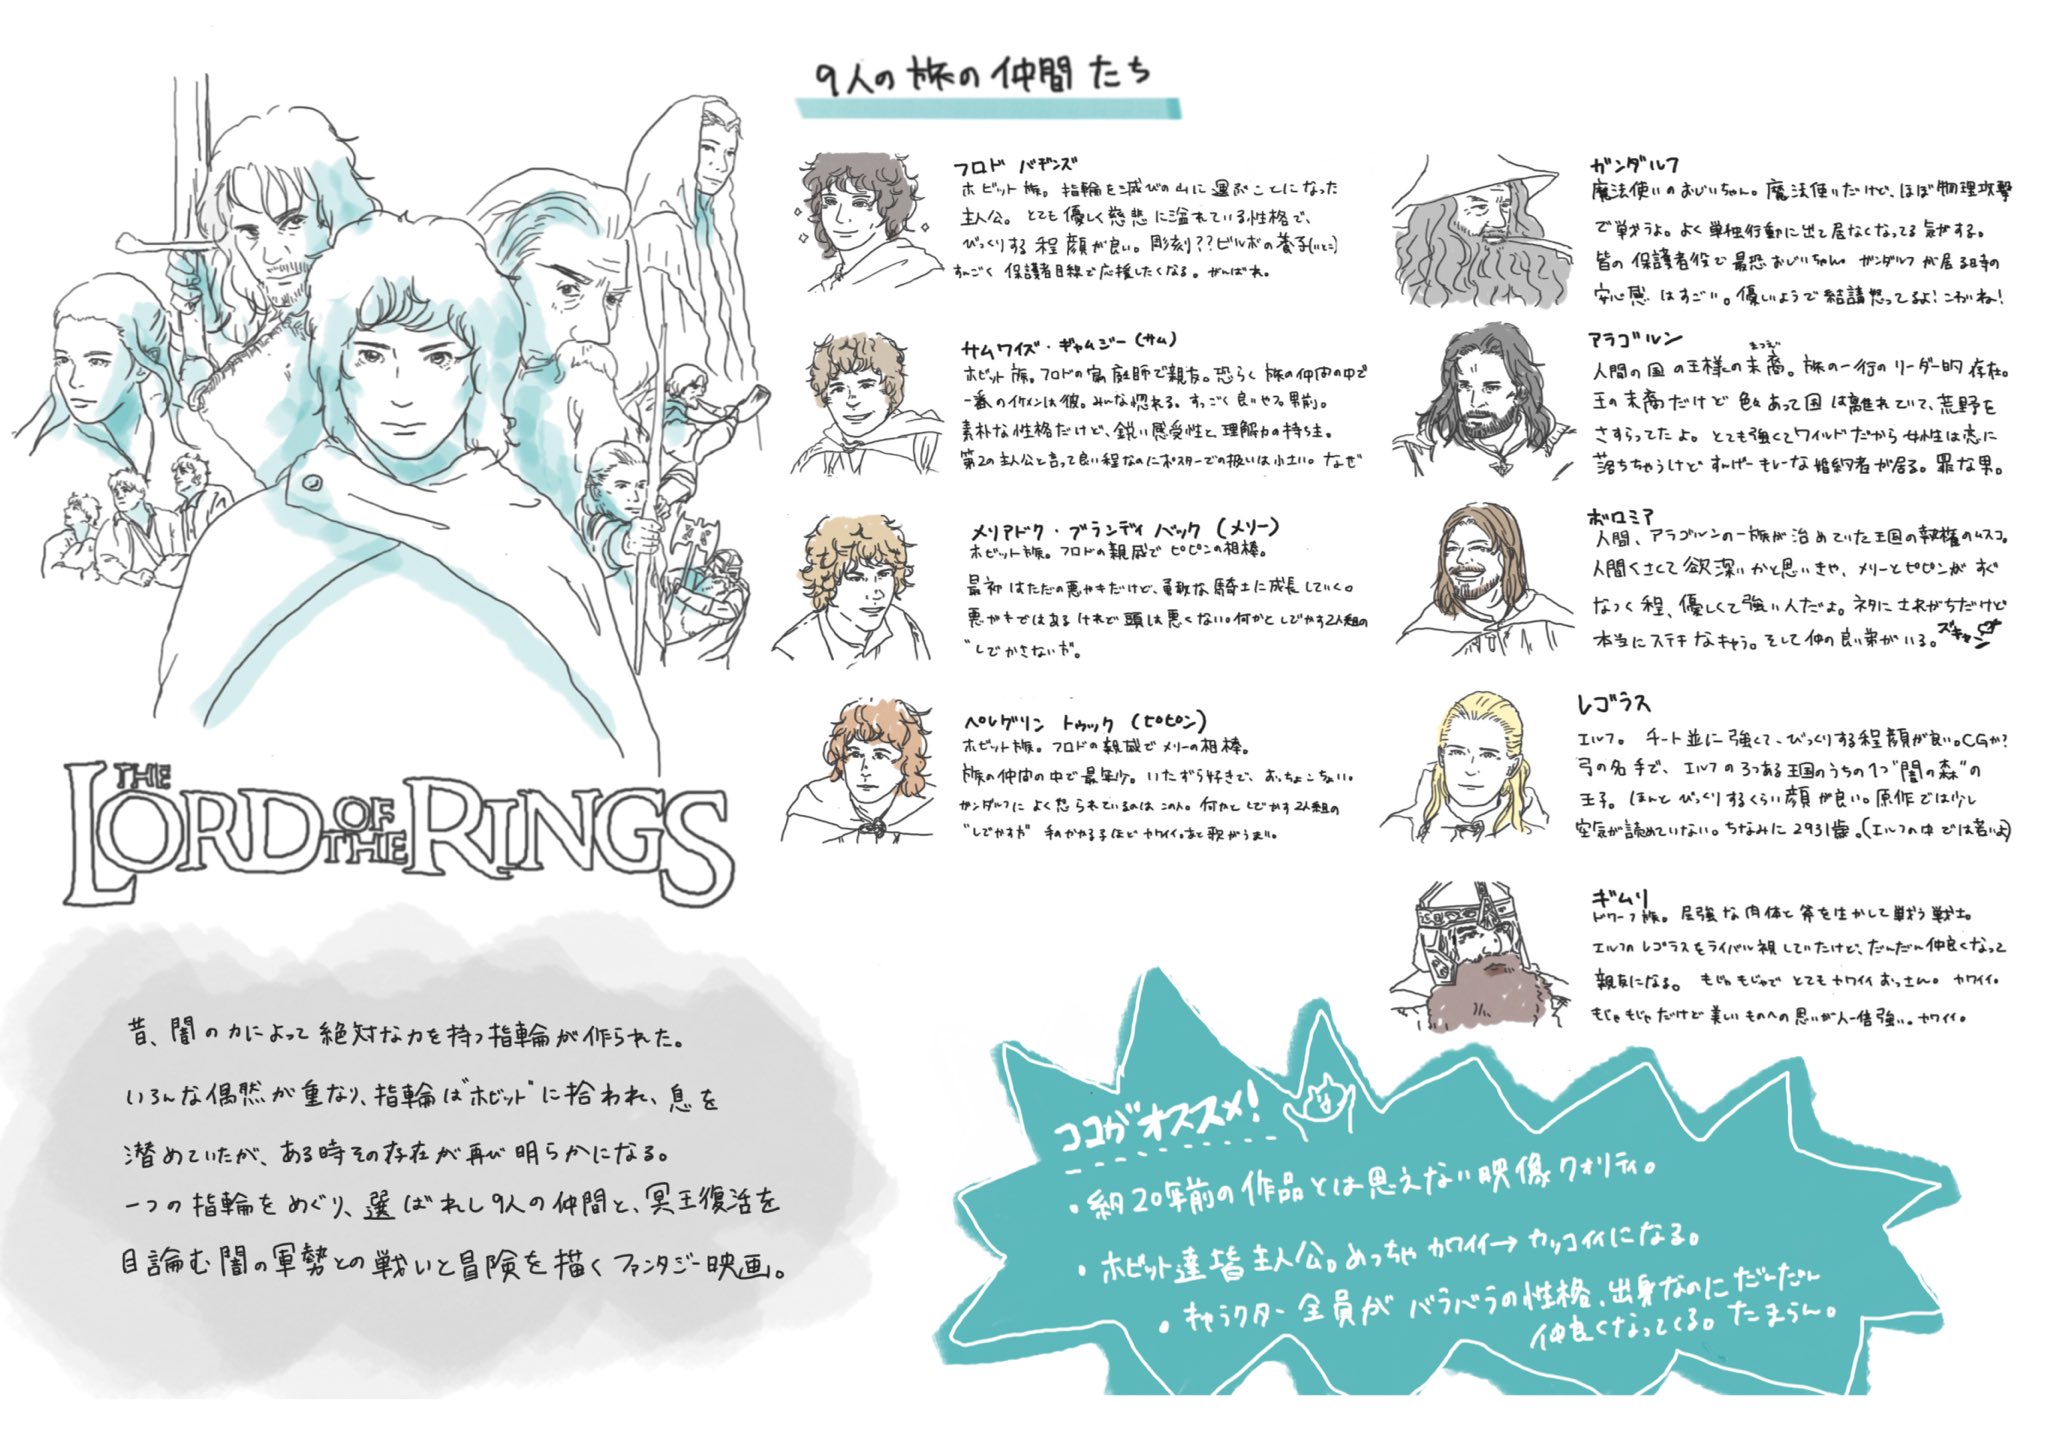 THE
LORD OF THE RINGS
昔、闇の力によって絶対な力を持つ指輪が作られた。
いろんな偶然が重なり、指輪は"ホビット"に拾われ、息を
潜めていたが、ある時その存在が再び明らかになる。
一つの指輪をめぐり、選ばれし9人の仲間と、冥王復活を
目論む闇の軍勢との戦いと冒険を描くファンタジー映画。
9人の旅の仲間たち
フロド バギンズ
ホビット族。指輪を滅びの山に運ぶことになった
主人公。とても優しく慈悲に溢れている性格で、
びっくりする程顔が良い。彫刻??ビルボの養子(いとこ)
すんごく保護者目線で応援したくなる。がんばれ。
サムワイズ・ギャムジー(サム)
ホビット族。フロドの家庭師で親友。恐らく旅の仲間の中で
一番のイケメンは彼。みんな惚れる。すっごく良いやつ。男前。
素朴な性格だけど、鋭い感受性と理解力の持ち主。
第2の主人公と言って良い程なのにポスターでの扱いは小さい。なぜ
メリアドク・ブランディバック(メリー)
ホビット族。フロドの親戚でピピンの相棒。
最初はただの悪ガキだけど、勇敢な騎士に成長していく。
悪ガキではあるけれど頭は悪くない。何かとしでかす2人組の
"しでかさない方"。
ペレグリン トゥック(ピピン)
ホビット族。フロドの親戚でメリーの相棒。
旅の仲間の中で最年少。いたずら好きで、おっちょこちょい。
ガンダルフによく怒られているのはこの人。何かとしでかす2人組の
"しでかす方"手のかかる子ほどカワイイ。あと歌がうまい。
ガンダルフ
魔法使いのおじいちゃん。魔法使いだけど、ほぼ物理攻撃
で戦うよ。よく単独行動に出て居なくなってる気がする。
皆の保護者役で最恐おじいちゃん。ガンダルフが居る時の
安心感はすごい。優しいようで結構怒ってるよ!こわいね!
アラゴルン
人間の国の王様の末裔。旅の一行のリーダー的存在。
まつえい
王の末裔だけど色々あって国は離れていて、荒野を
さすらってたよ。とても強くてワイルドだから女性は恋に
落ちちゃうけどすんげーキレーな婚約者が居る。罪な男。
ボロミア
人間、アラゴルンの一族が治めていた王国の執権のムスコ。
人間くさくて欲深いかと思いきや、メリーとピピンがすぐ
なつく程、優しくて強い人だよ。ネタにされがちだけど
本当にステキなキャラ。そして仲の良い弟がいる。ズキャン
レゴラス
エルフ。チート並に強くて、びっくりする程顔が良い。CGか?
弓の名手で、エルフの3つある王国のうちの1つ"闇の森"の
王子。ほんとびっくりするくらい顔が良い。原作では少し
空気が読めていない。ちなみに2931歳。(エルフの中では若いよ)
ギムリ
ドワーフ族。屈強な肉体と斧を生かして戦う戦士。
エルフのレゴラスをライバル視していたけど、だんだん仲良くなって
親友になる。もじゃもじゃでとてもカワイイおっさん。カワイイ。
もじゃもじゃだけど美しいものへの思いが人一倍強い。カワイイ。
ココがオススメ!
・約20年前の作品とは思えない映像クオリティ。
・ホビット達皆主人公。めっちゃカワイイ→カッコイイになる。
・キャラクター全員がバラバラの性格、出身なのにだんだん
仲良くなってくる。たまらん。